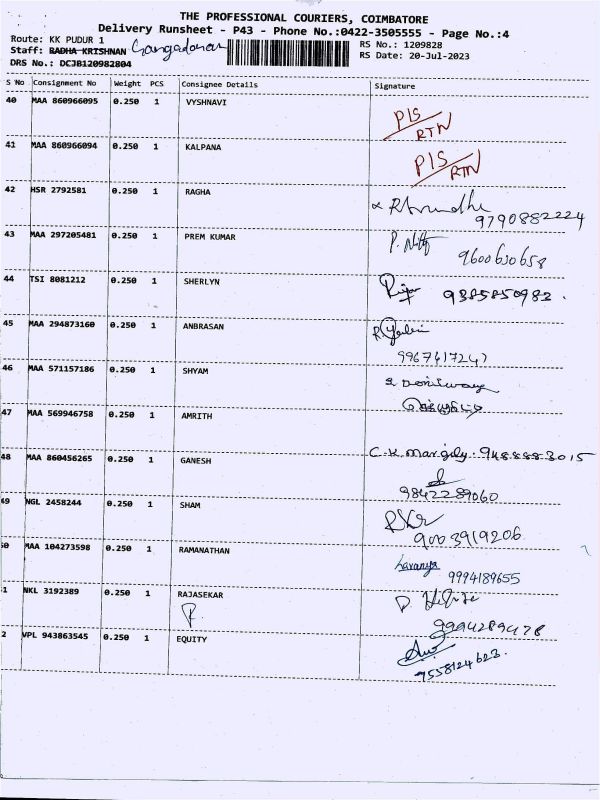 THE PROFESSIONAL COURIERS, COIMBATORE
Delivery Runsheet - P43 - Phone No.:0422-3505555 - Page No.:4
Route: KK PUDUR 1
RS No.: 1209828
Staff: RADHA KRISHNAN
RS Date: 20-Jul-2023
DRS No.: DCJB120982804
S No Consignment No Weight PCS Consignee Details Signature
40 MAA 860966095 0.250 1 VYSHNAVI
PIS/RTN
41 MAA 860966094 0.250 1 KALPANA
PIS/RTN
42 HSR 2792581 0.250 1 RAGHA
9790882224
43 MAA 297205481 0.250 1 PREM KUMAR
9600630658
44 TSI 8081212 0.250 1 SHERLYN
9385850982.
45 MAA 294873160 0.250 1 ANBRASAN
9967417247
46 MAA 571157186 0.250 1 SHYAM
47 MAA 569946758 0.250 1 AMRITH
48 MAA 860456265 0.250 1 GANESH
9842289060
49 NGL 2458244 0.250 1 SHAM
9003919206
0 MAA 104273598 0.250 1 RAMANATHAN
Lavanya
9994189655
1 NKL 3192389 0.250 1 RAJASEKAR
9994289478
2 VPL 943863545 0.250 1 EQUITY
9558124623.